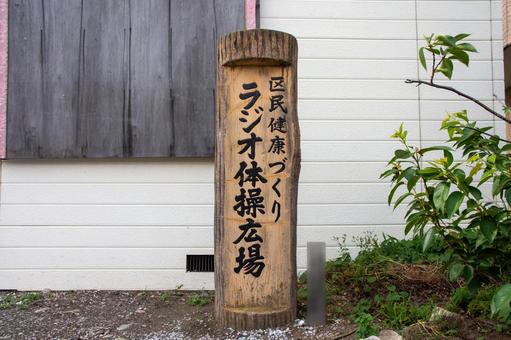 区民健康づくり
ラジオ体操広場